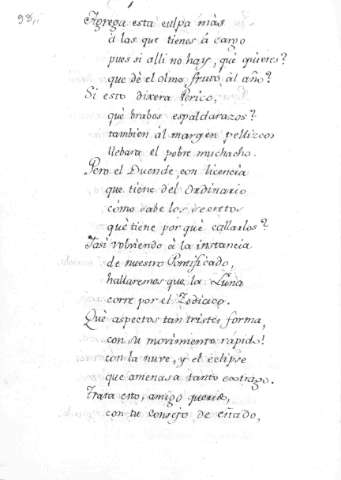 93,,
Agrega esta culpa más
à las que tienes à cargo
pues si alli no hay, què quieres?
que dè el olmo fruto àl año?
Si esto dixera Perico,
què brabos espaldarazos?
tambien àl margen pellizcos
llebara el pobre muchacho.
Pero el Duende, con licencia
que tiene del Ordinario
còmo sabe los decretos
què tiene por què callarlos?
Y asi volviendo à la instancia
de nuestro Pontificado,
hallaremos que la Luna
corre por el Zodiaco.
Què aspectos tan tristes forma,
con su movimiento rápido!
con la nuve, y el eclipse
que amenasa tanto estrago.
Trata esto, amigo
con tu consejo de estado,